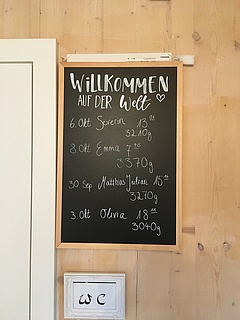 WILLKOMMEN
AUF DER Welt ♡
6. Okt Severin 13
3210g
8. Okt Emma 7
3370g
30. Sep Matthias Julian 15
3270g
3. Okt Olivia 18
3040g
WC